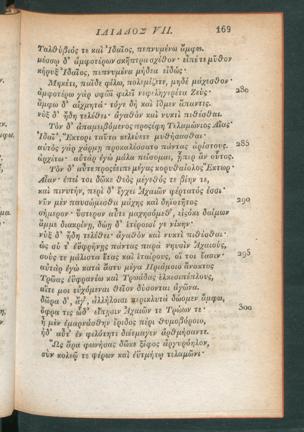 ΙΛΙΑΔΟΣ VII. 169
Ταλθύβιός τε καὶ Ἰδαῖος, πεπνυμένω ἄμφω.
μέσσῳ δ' ἀμφοτέρων σκῆπτρα σχέθον· εἶπέ τε μῦθον
κῆρυξ Ἰδαῖος, πεπνυμένα μήδεα εἰδώς·
Μηκέτι, παῖδε φίλω, πολεμίζετε, μηδὲ μάχεσθον·
ἀμφοτέρω γὰρ σφῶϊ φιλεῖ νεφεληγερέτα Ζεύς· 280
ἄμφω δ' αἰχμητά· τόγε δὴ καὶ ἴδμεν ἅπαντες.
νὺξ δ' ἤδη τελέθει· ἀγαθὸν καὶ νυκτὶ πιθέσθαι.
Τὸν δ' ἀπαμειβόμενος προσέφη Τελαμώνιος Αἴας·
Ἰδαῖ', Ἕκτορα ταῦτα κελεύετε μυθήσασθαι·
αὐτὸς γὰρ χάρμῃ προκαλέσσατο πάντας ἀρίστους. 285
ἀρχέτω· αὐτὰρ ἐγὼ μάλα πείσομαι, ᾗπερ ἂν οὗτος.
Τὸν δ' αὖτε προσέειπε μέγας κορυθαίολος Ἕκτωρ·
Αἶαν· ἐπεί τοι δῶκε θεὸς μέγεθός τε βίην τε,
καὶ πινυτὴν, περὶ δ' ἔγχει Ἀχαιῶν φέρτατός ἐσσι·
νῦν μὲν παυσώμεσθα μάχης καὶ δηϊοτῆτος 290
σήμερον· ὕστερον αὖτε μαχησόμεθ', εἰσόκε δαίμων
ἄμμε διακρίνῃ, δώῃ δ' ἑτέροισί γε νίκην·
νὺξ δ' ἤδη τελέθει· ἀγαθὸν καὶ νυκτὶ πιθέσθαι·
ὡς σύ τ' εὐφρήνῃς πάντας παρὰ νηυσὶν Ἀχαιοὺς,
σούς τε μάλιστα ἔτας καὶ ἑταίρους, οἵ τοι ἔασιν· 295
αὐτὰρ ἐγὼ κατὰ ἄστυ μέγα Πριάμοιο ἄνακτος
Τρῶας εὐφρανέω καὶ Τρωάδας ἑλκεσιπέπλους,
αἵτε μοι εὐχόμεναι θεῖον δύσονται ἀγῶνα.
δῶρα δ', ἄγ', ἀλλήλοισι περικλυτὰ δώομεν ἄμφω,
ὄφρα τις ὧδ' εἴπῃσιν Ἀχαιῶν τε Τρώων τε· 300
ἠ μὲν ἐμαρνάσθην ἔριδος πέρι θυμοβόροιο,
ἠδ' αὖτ' ἐν φιλότητι διέτμαγεν ἀρθμήσαντε.
Ὣς ἄρα φωνήσας δῶκε ξίφος ἀργυρόηλον,
σὺν κολεῷ τε φέρων καὶ ἐϋτμήτῳ τελαμῶνι·